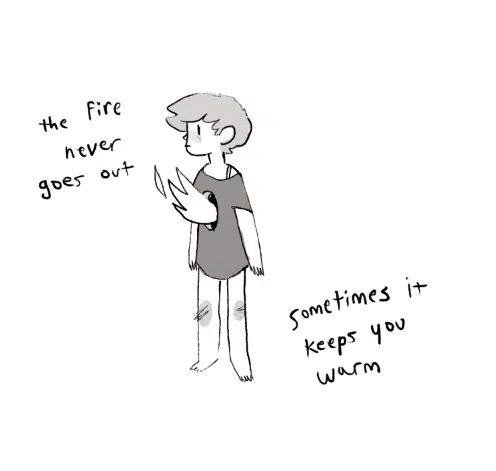 the fire
never
goes out
sometimes it
keeps you
warm